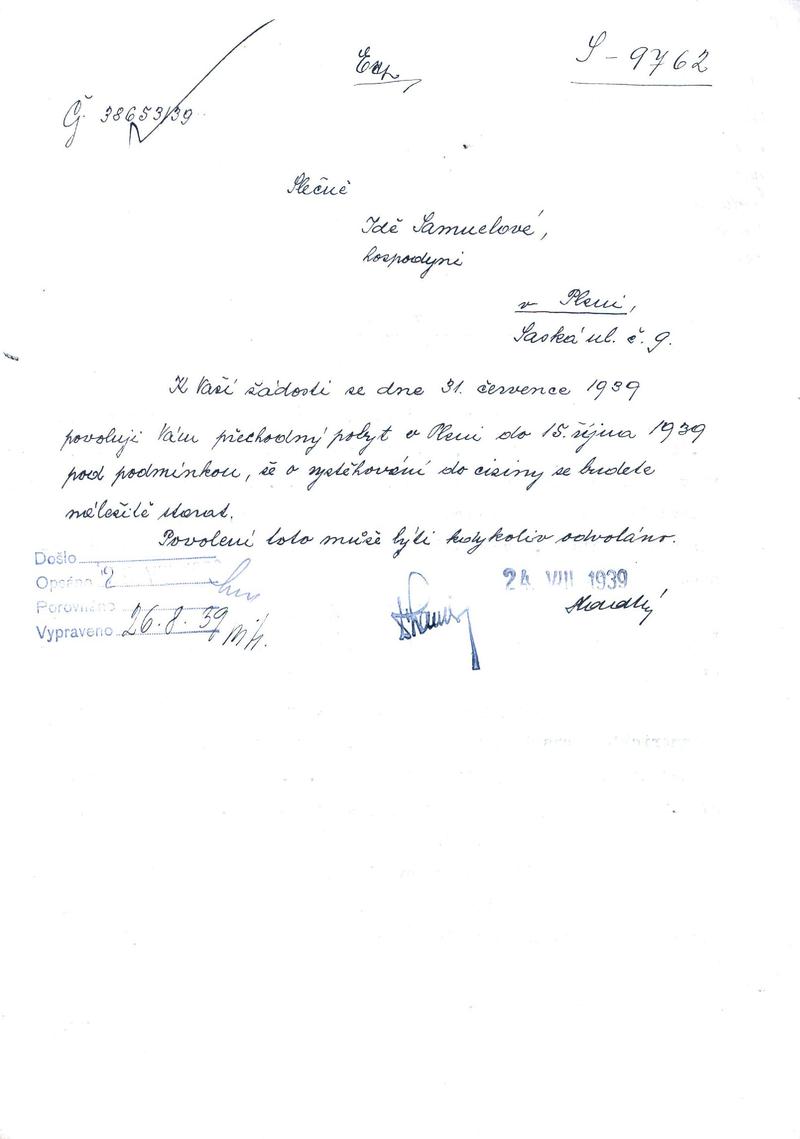 S-9762
Exp.
Č. 38653/39
Slečně
Idě Samuelové,
hospodyni
v Plzni,
Saská ul. č. 9.
K Vaší žádosti se dne 31. července 1939
povoluji Vám přechodný pobyt v Plzni do 15. října 1939
pod podmínkou, že o vystěhování do ciziny se budete
náležitě starat.
Povolení toto může býti kdykoliv odvoláno.
Došlo
Opsáno
Porovnáno
Vypraveno 26.8.39
24. VIII 1939